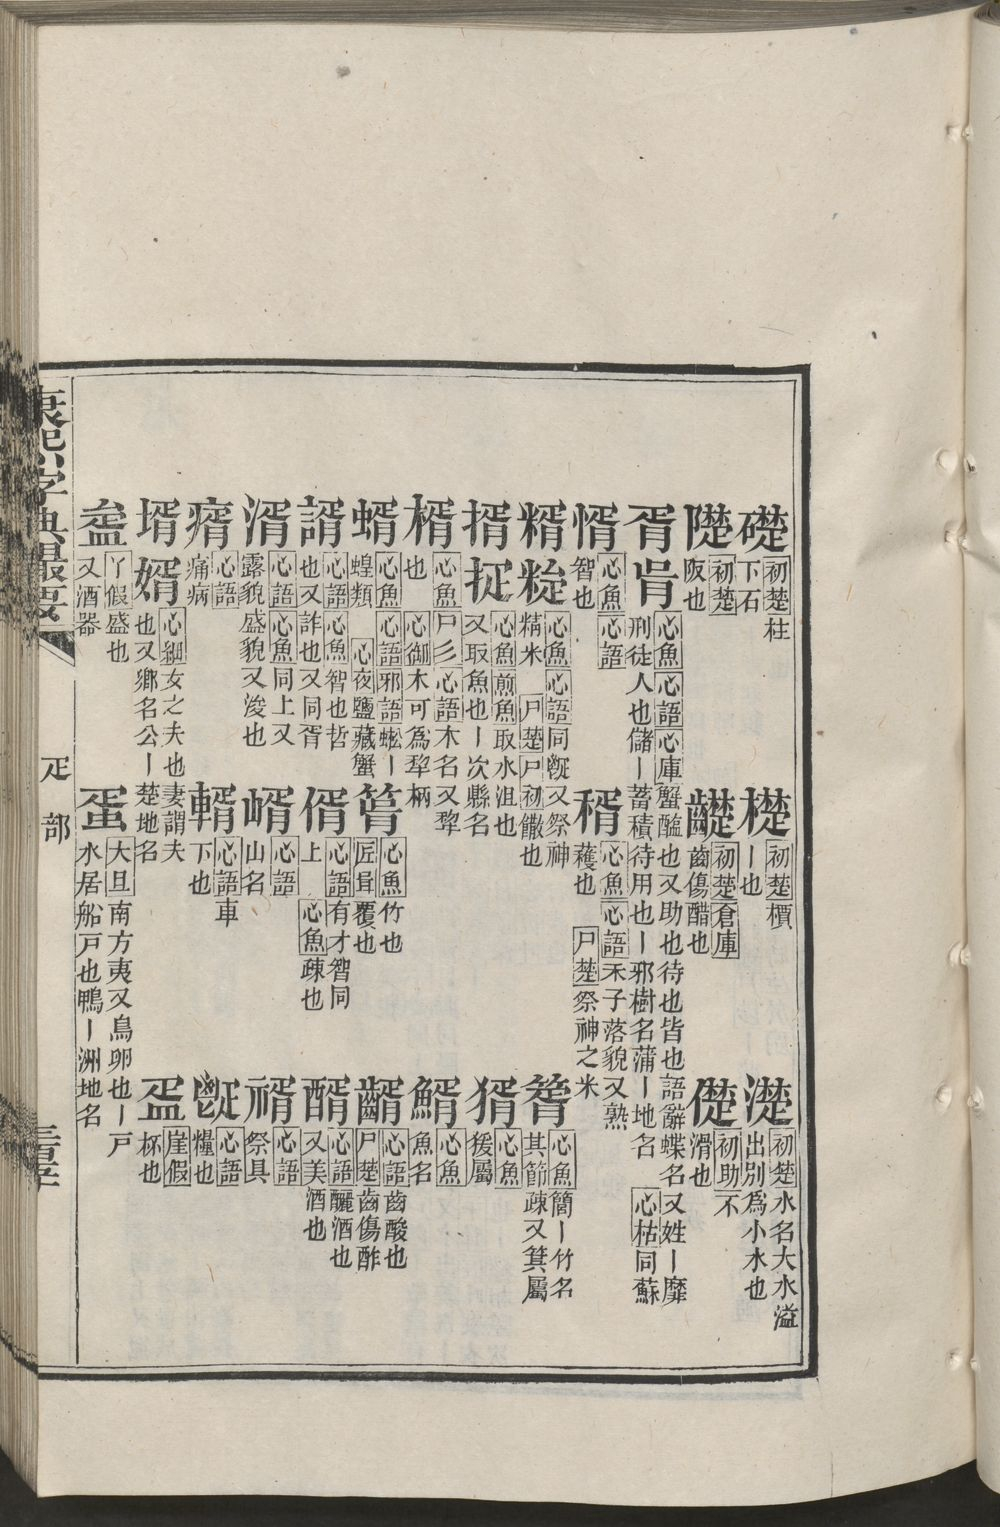 礎 初楚 柱下石
檚 初楚 檟丨也
濋 初楚 水名大水溢出別為小水也
䃼 初楚 阪也
齼 初楚 倉庫 齒傷醋也
儊 初助 不滑也
胥 𦙃 心魚 心語 心庫 蟹醢也又助也待也皆也語辭蝶名又姓丨靡刑徒人也儲丨蓄積待用也丨邪樹名蒲丨地名 心枯 同蘇
惰 心魚 心語 智也
稰 心魚 心語 禾子落貌又熟穫也 尸楚 祭神之米
糈 心魚 心語 同𥘶又祭神精米 尸楚 尸初 饊也
箵 心魚 簡丨竹名其節疎又箕屬
揟 心魚 煎魚 取水沮也又取魚也丨次縣名
猾 心魚 猨屬
楈 心魚 尸彡 心語 木名又犂也 心御 木可為犂柄
鰖 心魚 魚名
蝑 心魚 心語 邪語 蚣丨蝗類 心夜 鹽藏蟹
䈝 心魚 竹也 匠𦔮 覆也
齭 心語 齒酸也 尸楚 齒傷酢
諝 心語 心魚 智也哲也又詐也又同胥
偦 心語 有才智同上 心魚 疎也
醑 心語 釃酒也又美酒也
湑 心語 心魚 同上又露貌盛貌又浚也
㟬 心語 山名
祣 心語 祭具
㾻 心語 痛病
𨌅 心語 車下也
心語 糧也
壻 婿 心 女之夫也妻謂夫也又鄉名公丨楚地名
㿿 崖假 杯也
㿿 丫假 盛也又酒器
蛋 大旦 南方夷又鳥卵也丨戶水居船戶也鴨丨洲地名
康熙字典撮要
疋部